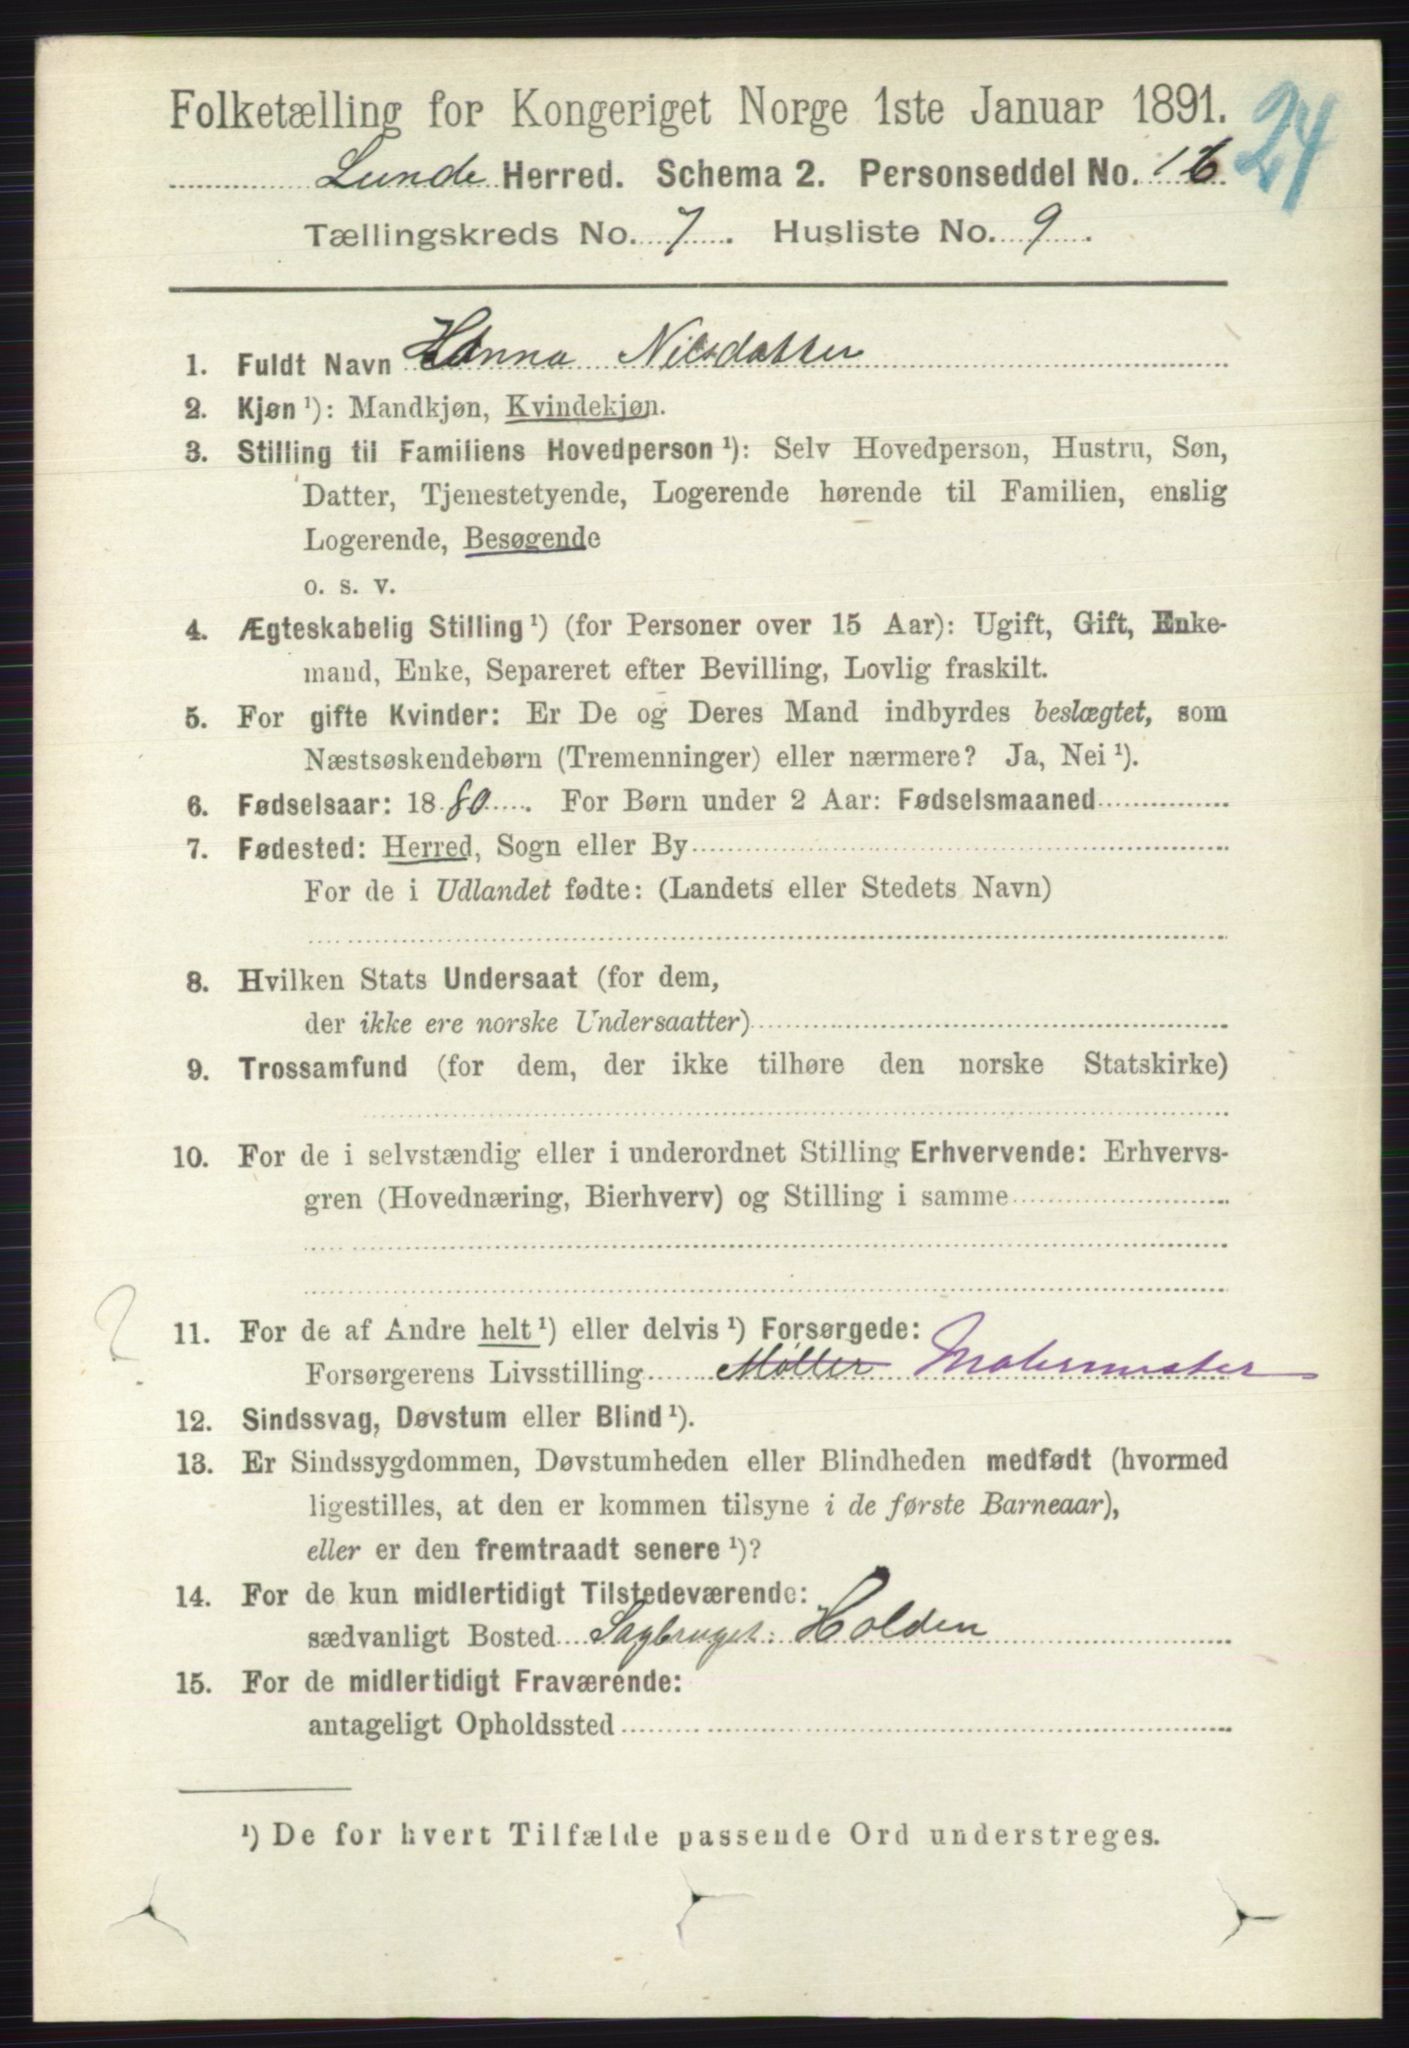 Folketælling for Kongeriget Norge 1ste Januar 1891.
24
Lunde Herred. Schema 2. Personseddel No. 16
Tællingskreds No. 7. Husliste No. 9.
1. Fuldt Navn Hanna Nilsdatter
2. Kjøn ¹): Mandkjøn, Kvindekjøn.
3. Stilling til Familiens Hovedperson ¹): Selv Hovedperson, Hustru, Søn,
Datter, Tjenestetyende, Logerende hørende til Familien, enslig
Logerende, Besøgende
o. s. v.
4. Ægteskabelig Stilling ¹) (for Personer over 15 Aar): Ugift, Gift, Enke-
mand, Enke, Separeret efter Bevilling, Lovlig fraskilt.
5. For gifte Kvinder: Er De og Deres Mand indbyrdes beslægtet, som
Næstsøskendebørn (Tremenninger) eller nærmere? Ja, Nei ¹).
6. Fødselsaar: 1880. For Børn under 2 Aar: Fødselsmaaned
7. Fødested: Herred, Sogn eller By
For de i Udlandet fødte: (Landets eller Stedets Navn)
8. Hvilken Stats Undersaat (for dem,
der ikke ere norske Undersaatter)
9. Trossamfund (for dem, der ikke tilhøre den norske Statskirke)
10. For de i selvstændig eller i underordnet Stilling Erhvervende: Erhvervs-
gren (Hovednæring, Bierhverv) og Stilling i samme
?
11. For de af Andre helt ¹) eller delvis ¹) Forsørgede:
Forsørgerens Livsstilling Møller Malermester
12. Sindssvag, Døvstum eller Blind ¹).
13. Er Sindssygdommen, Døvstumheden eller Blindheden medfødt (hvormed
ligestilles, at den er kommen tilsyne i de første Barneaar),
eller er den fremtraadt senere ¹)?
14. For de kun midlertidigt Tilstedeværende:
sædvanligt Bosted Sagbruget: Holden
15. For de midlertidigt Fraværende:
antageligt Opholdssted
¹) De for hvert Tilfælde passende Ord understreges.